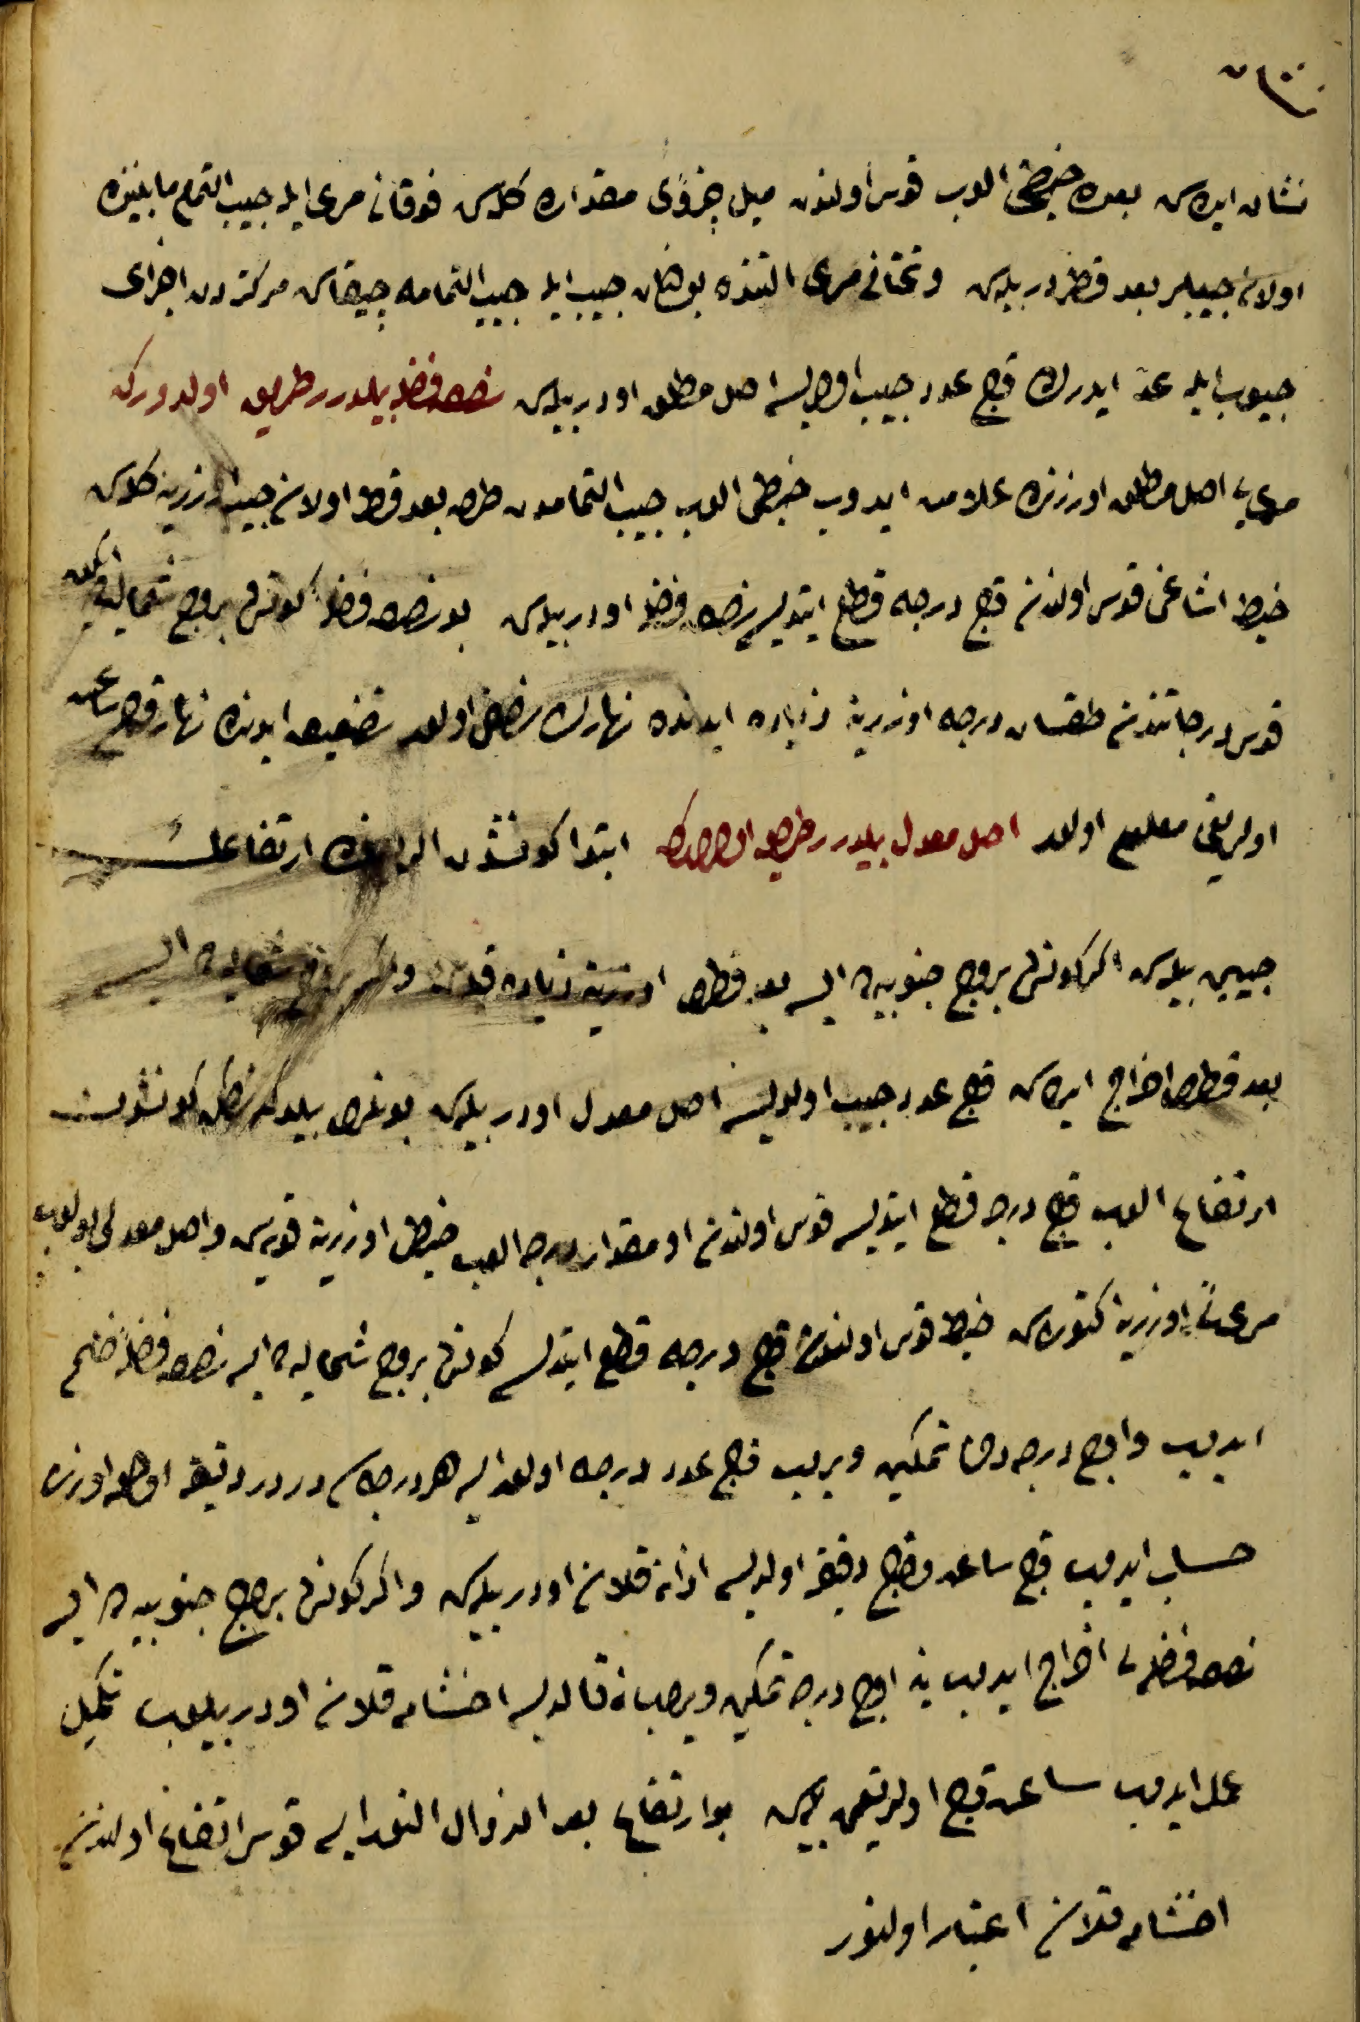 نشان ایده‌سن بعده خیطی الوب قوس اولندن میل جزؤی مقداره کله‌سن فوقانی مری ایله جیب التمام مابیننده
اولان جیبلر بعد قطردر بیله‌سن و تحتانی مری التنده بولنان جیب ایله جیب التمامه چیقاسن مرکزدن اجزای
جیوب ایله عد ایدرك قچ عدد جیب اولورسه اصل مطلق اودر بیله‌سن نصف فضله بیلدرر طریق اولدورکه
مری‌یی اصل مطلق اوزرنده علامت ایدوب خیطی الوب جیب التمامدن طرف بعد قطر اولان جیب اوزرینه کله‌سن
خیط اشاغی قوس اولندن قچ درجه قطع ایتدیسه نصف فضله اودر بیله‌سن بو نصف فضله کونش بروج شمالیه‌ده ایکن
قوس درجاتندن طقسان درجه اوزرینه زیاده ایدنده نهارك نصفی اولور تضعیف ایدنده نهار قچ ساعت
اولدیغی معلوم اولور اصل معدل بیلدرر طریق اولدورکه ابتدا کونشدن ارتفاعك
جیبین بیله‌سن اکر کونش بروج جنوبیه‌ده ایسه بعد قطری اوزرینه زیاده قیله‌سن و اکر بروج شمالیه‌ده ایسه
بعد قطری اخراج ایده‌سن قچ عدد جیب اولدیسه اصل معدل اودر بیله‌سن بونلری بیلدکدنصکره کونشدن
ارتفاع الوب قچ درجه قطع ایتدیسه قوس اولندن او مقدار درجه الوب خیطی اوزرینه قویه‌سن و اصل معدلی بولوب
مری‌یی اوزرینه کتوره‌سن خیط قوس اولندن قچ درجه قطع ایتدیسه کونش بروج شمالیه‌ده ایسه نصف فضله ضم
ایدوب و اوچ درجه دخی تمکین ویروب قچ عدد درجه اولدیسه هر درجه‌سن دردر دقیقه اولمق اوزره
حساب ایدوب قچ ساعت و قچ دقیقه اولدیسه اذانه قلان اودر بیله‌سن و اکر کونش بروج جنوبیه‌ده ایسه
نصف فضله‌یی اخراج ایدوب ینه اوچ درجه تمکین ویروب باقی قالدیسه اخشامه قلان اودر بیلوب تکمیل
عمل ایدوب ساعت قچ اولدیغین بیله‌سن بو ارتفاع بعد الزوال النورایسه قوس ارتفاع اولندن
اخشامه قلان اعتبار اولنور